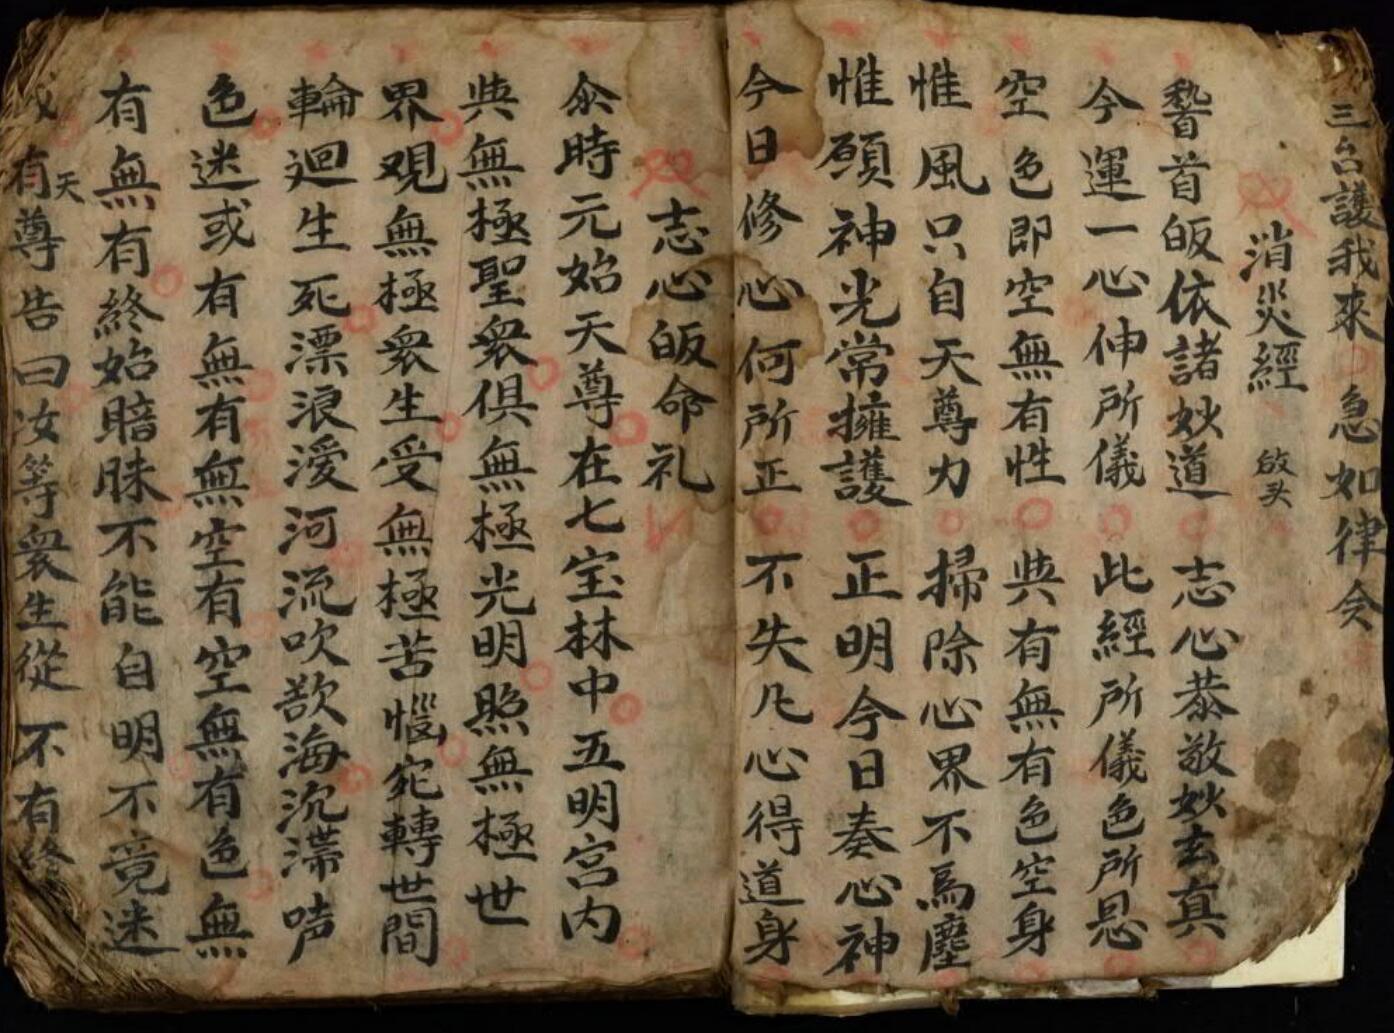 三台護我來 急如律令
消災經 啟头
稽首皈依諸妙道 志心恭敬妙玄真
今運一心伸所儀 此經所儀色所思
空色即空無有性 與有無有色空身
惟風只自天尊力 掃除心界不爲塵
惟願神光常擁護 正明今日奏心神
今日修心何所正 不失凡心得道身
志心皈命礼
尒時元始天尊在七宝林中五明宫内
與無極聖衆俱無極光明照無極世
界观無極衆生受無極苦惱宛轉世間
輪迴生死漂浪爱河流吹歆海沉滞声
色迷或有無有無空有空無有色無
有無有終始暗昧不能自明不竟迷
有天尊告曰汝等衆生從不有終